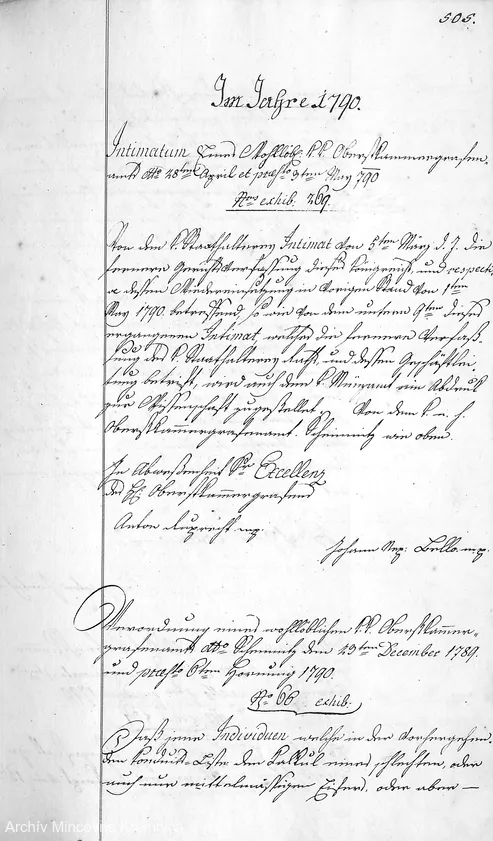 505.
Im Jahre 1790.
Intimatum Eines Wohllöbl: k. k. Oberstkammergrafen-
amts dto 28ten April et præsto 9ten May 790
Nro exhib: 269.
Von dem k. Statthalterey Intimat von 5ten März d. J. die
fernere Gerichtsverfassung dieses Königreichs, und respecti-
ve dessen Wiedereinsetzung in vorigen Stand von 1ten
May 1790. betreffend, so wie von dem unterm 9ten dieses
ergangenen Intimat, welches die fernere Verfaß-
ung der k. Statthalterey selbst, und dessen Geschäftslei-
tung betrift, wird auch dem k. Münzamt ein Abdruk
zur Wissenschaft zugestellet. Von dem k. u. k.
Oberstkammergrafenamt. Schemnitz wie oben.
In Abwesenheit Sr Excellenz
des H: Oberstkammergrafens
Anton Ruprecht mp.
Johann Nep: Bello. mp.
Verordnung eines wohllöblichen k. k. Oberstkammer-
grafenamts ddto Schemnitz den 23ten December 1789.
und præsto 6ten Hornung 1790.
Nro 66 exhib:
Daß jene Individuen welche in der vorhergehen-
den Conduit-Liste den Kalkul eines schlechten, oder
auch nur mittelmässigen Eifers, oder aber —
Archiv Mincovne Kremnica